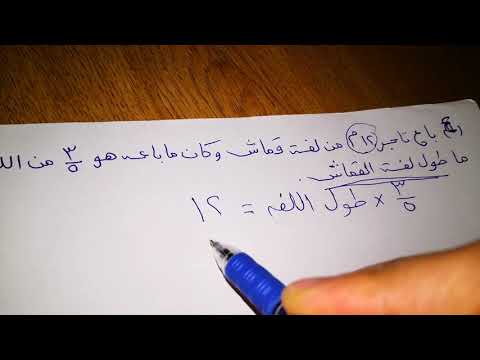 باع تاجر ١٢م من لفة قماش وكان ما باعه هو ٣/٥ من
ما طول لفة القماش.
٣/٥ × طول اللفه = ١٢